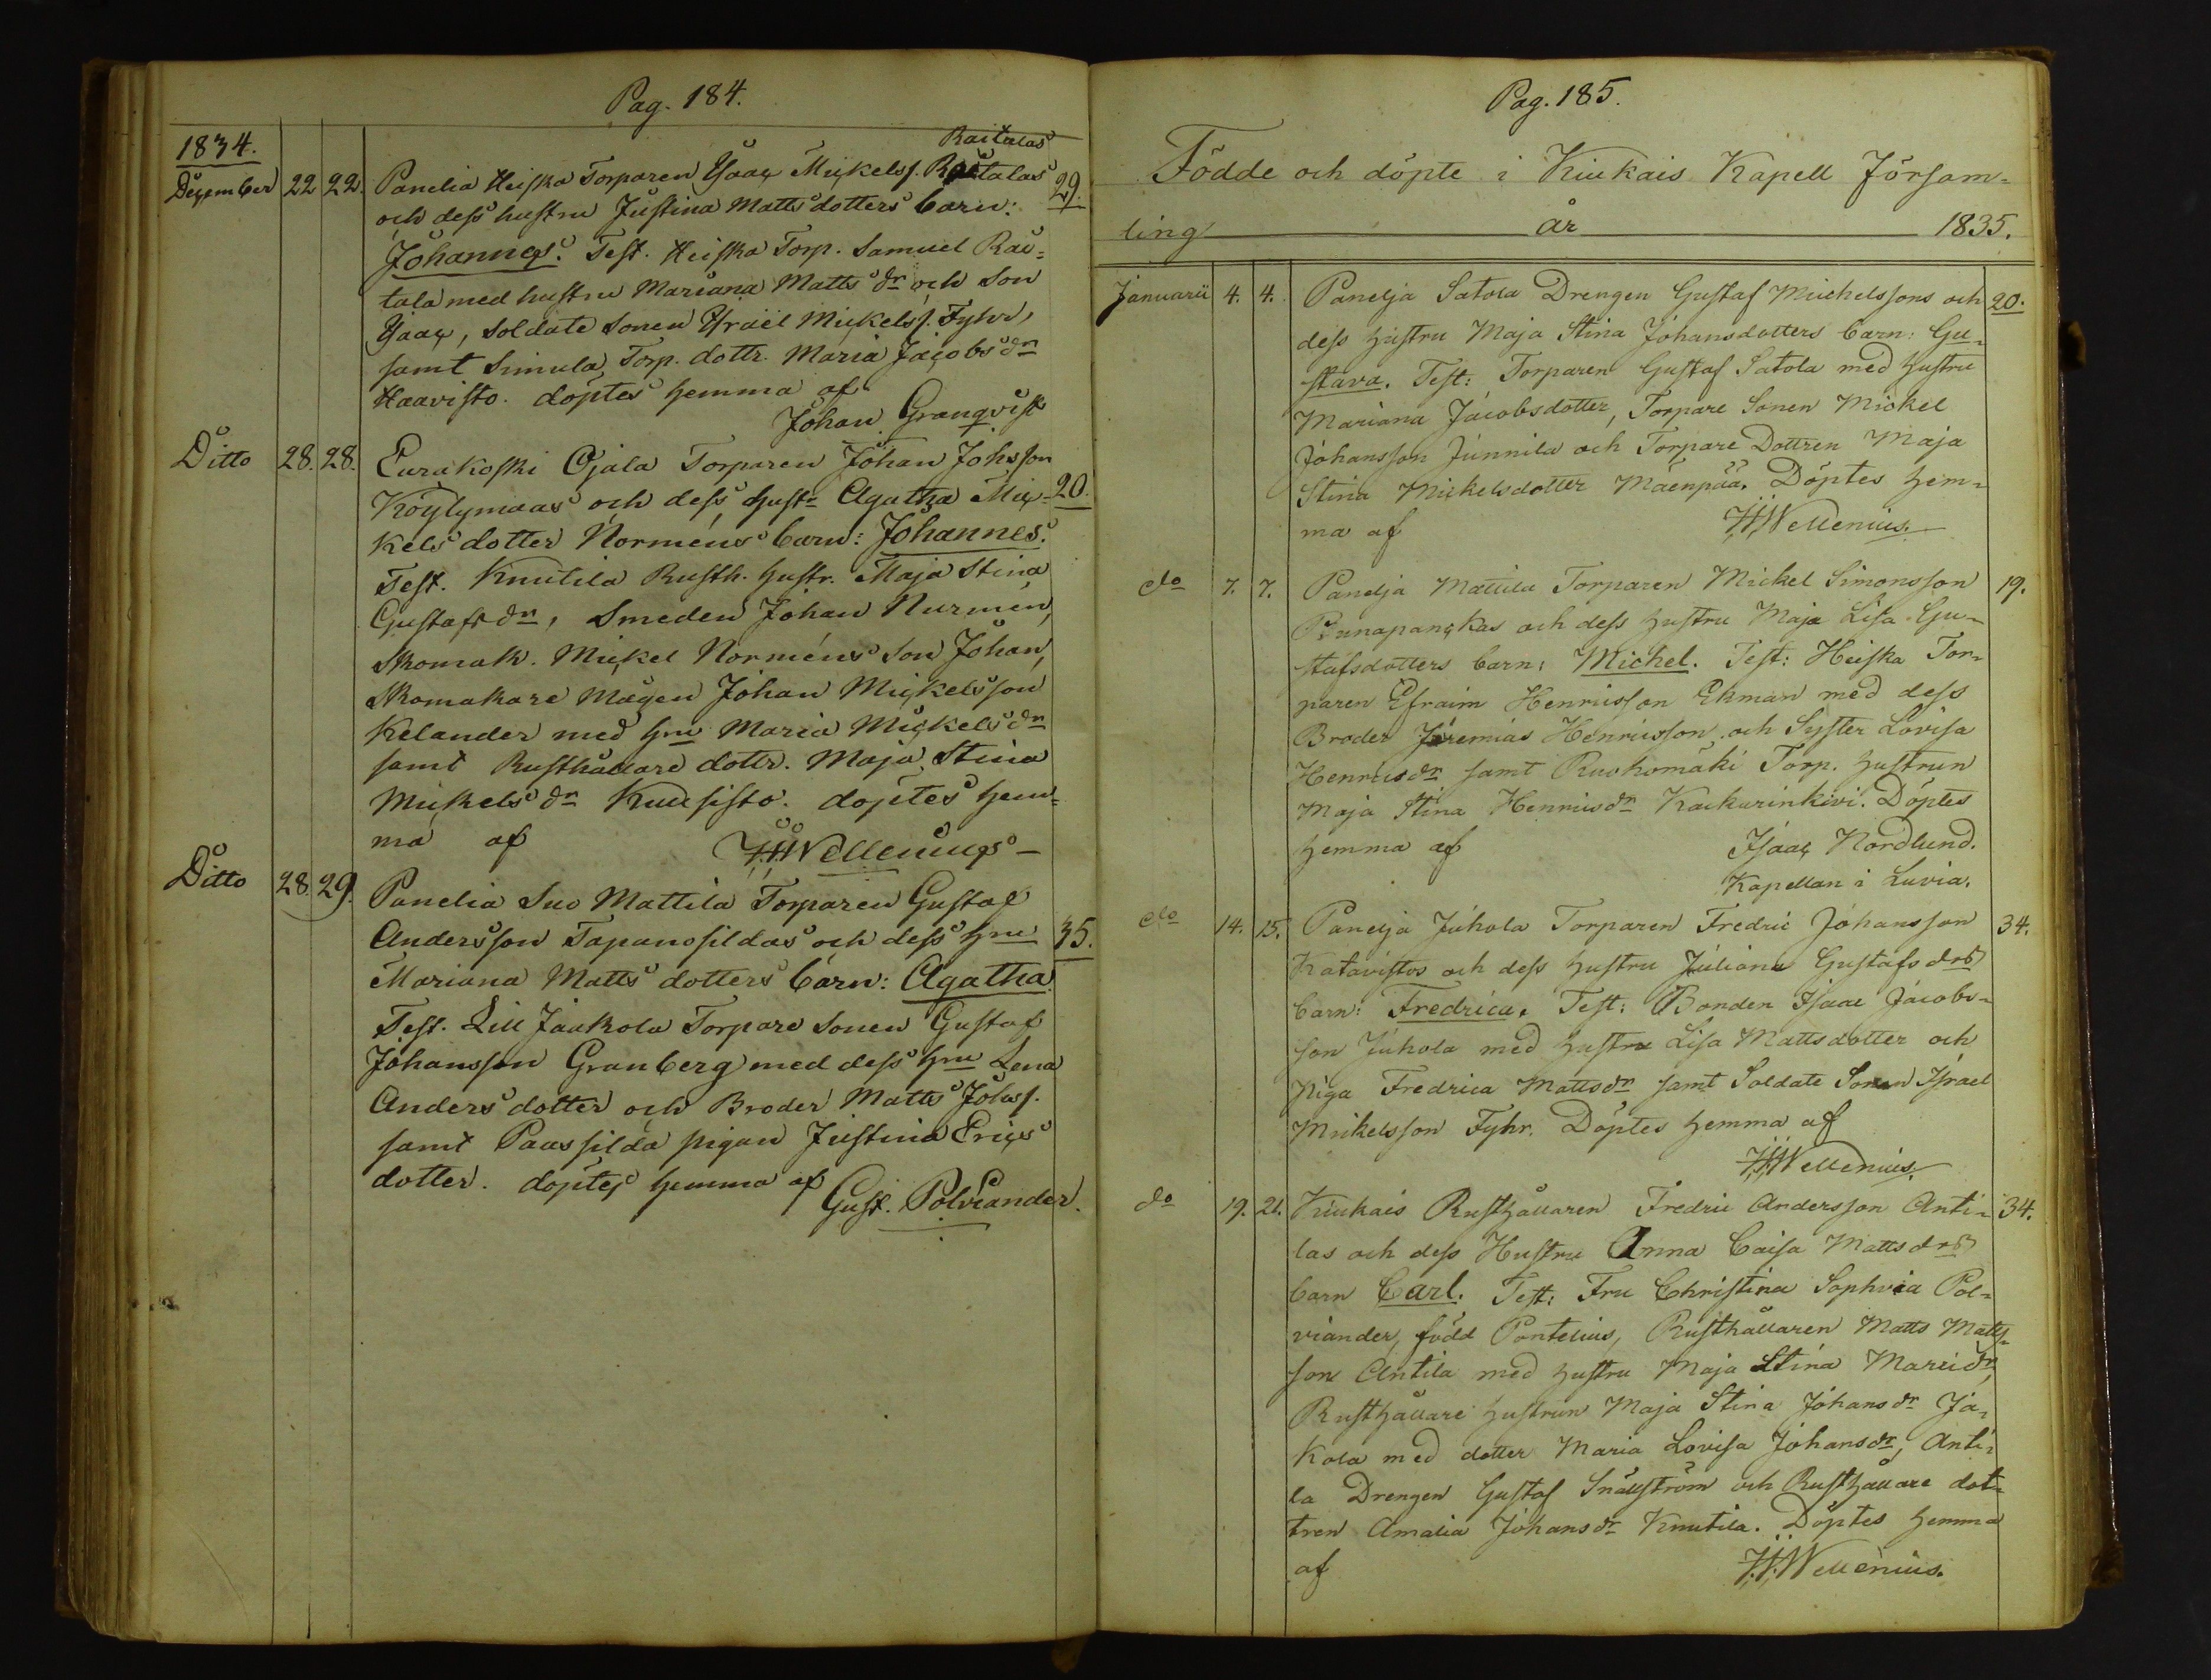 Pag. 184.
1834.
Raitalas
December 22 22. Panelia Heiska Torparen Isaac Mickelss. Raitalas 29.
och dess hustru Justina Matts dotters barn:
Johannes. Test. Heiska Torp. Samuel Rai=
tala med hustru Mariana Matts dr och Son
Isaac, Soldate Sonen Israël Mickelss. Fyhr,
samt Simula Torp. dottr. Maria Jacobs dr
Haavisto. döptes hemma af
Johan Granqvist
Ditto 28. 28. Eurakoski Ojala Torparen Johan Johsson
Köylymaas och dess hustr Agatha Mic= 20.
kels dotter Norméns barn: Johannes.
Test. Knutila Rusth. hustr. Maja Stina
Gustafs dr, Smeden Johan Nurmén,
Skomak. Mickel Norméns Son Johan,
Skomakare Mågen Johan Mickelsson
Kelander med hru Maria Mickels dr
samt Rusthållare dottr. Maja Stina
Mickels dr Kuusisto. döptes hem=
ma af H.H.Wellenius
Ditto 28. 29. Panelia Suo Mattila Torparen Gustaf
Andersson Tapanosildas och dess hru 35.
Mariana Matts dotters barn: Agatha.
Test. Lill Jaakola Torpare Sonen Gustaf
Johansson Granberg med dess hru Lena
Anders dotter och Broder Matts Johss.
samt Paassilda pigan Justina Erics
dotter. döptes hemma af
Gust. Polviander.
Pag. 185.
Födde och döpte i Kiukais Kapell Försam=
ling år 1835.
Januarii 4. 4. Panelja Satola Drengen Gustaf Michelssons och 20.
dess hustru Maja Stina Johansdotters barn: Gu=
stava. Test: Torparen Gustaf Satola med hustru
Mariana Jacobsdotter, Torpare Sonen Mickel
Johansson Junnila och Torpare Dottren Maja
Stina Mickelsdotter Mäenpää. Döptes hem=
ma af H.H.Wellenius.
do 7. 7. Panelja Mattila Torparen Mickel Simonsson 19.
Punapanckas och dess hustru Maja Lisa Gu=
stafsdotters barn: Michel. Test: Heiska Tor=
paren Efraim Henricsson Ekman med dess
Broder Jeremias Henricsson och Syster Lovisa
Henricsdr samt Ruokomäki Torp. hustrun
Maja Stina Henricsdr Kackurinkivi. Döptes
hemma af Isaac Nordlund.
Kapellan i Luvia.
do 14. 15. Panelja Juhola Torparen Fredric Johansson 34.
Katavistos och dess hustru Juliana Gustafs drs
barn: Fredrica. Test: Bonden Isaac Jacobs=
son Juhola med hustru Lisa Mattsdotter och
piga Fredrica Mattsdr samt Soldate Sonen Israel
Mickelsson Fyhr. Döptes hemma af
H.H.Wellenius.
do 19. 21. Kiukais Rusthållaren Fredric Andersson Anti= 34.
las och dess Hustru Anna Caisa Matts drs
barn Carl. Test: Fru Christina Sophia Pol=
viander, född Pontelius, Rusthållaren Matts Matts=
son Antila med hustru Maja Stina Marcidr,
Rusthållare hustrun Maja Stina Johansdr Ja=
kola med dotter Maria Lovisa Johansdr, Anti=
la Drengen Gustaf Snällström och Rusthållare dot=
tren Amalia Johansdr Knutila. Döptes hemma
af H.H.Wellenius.